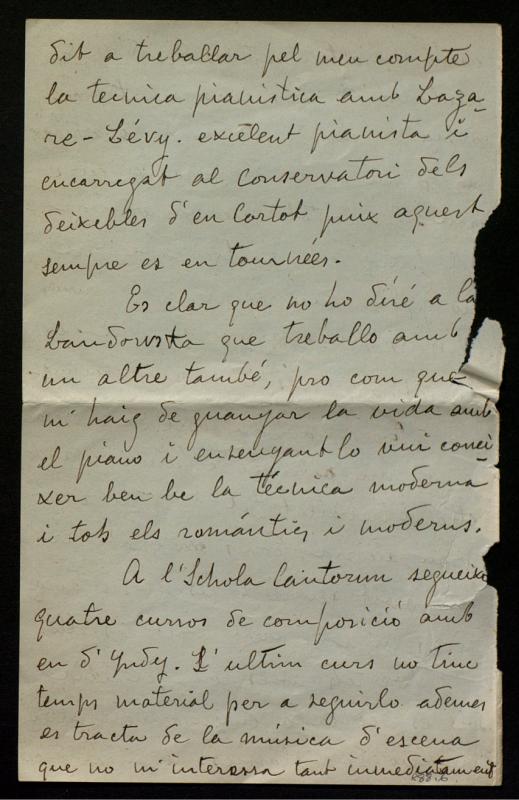 dit a treballar pel meu compte
la tecnica pianistica amb Laza
re-Lévy. excelent pianista i
encarregat al Conservatori dels
deixebles d'en Cortot puix aquest
sempre es en tournées.
Es clar que no ho diré a la
Landowska que treballo amb
un altre també, pro com que
m'haig de guanyar la vida amb
el piano i ensenyantlo vui conei
xer ben be la técnica moderna
i tots els romántics i moderns.
A l'Schola Cantorum segueixo
quatre cursos de composició amb
en d'Yndy. L'ultim curs no tinc
temps material per a seguirlo ademes
es tracta de la música d'escena
que no m'interessa tant immediatament